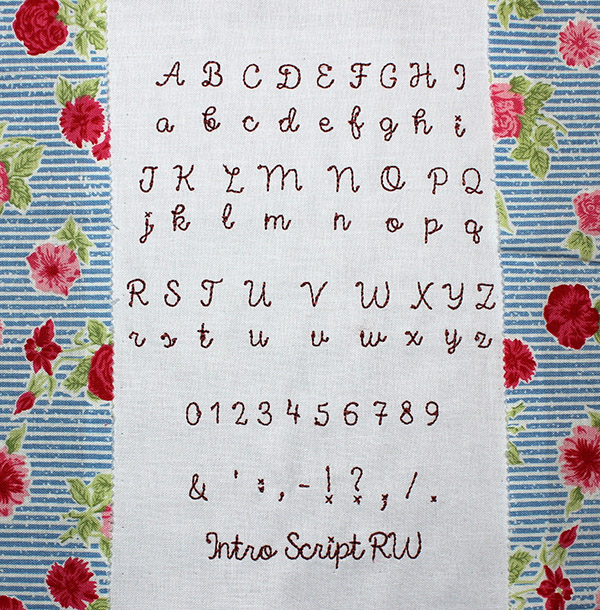 A B C D E F G H I
a b c d e f g h i
J K L M N O P Q
j k l m n o p q
R S T U V W X Y Z
r s t u v w x y z
0 1 2 3 4 5 6 7 8 9
& ' : , - ! ? ; / .
Intro Script RW